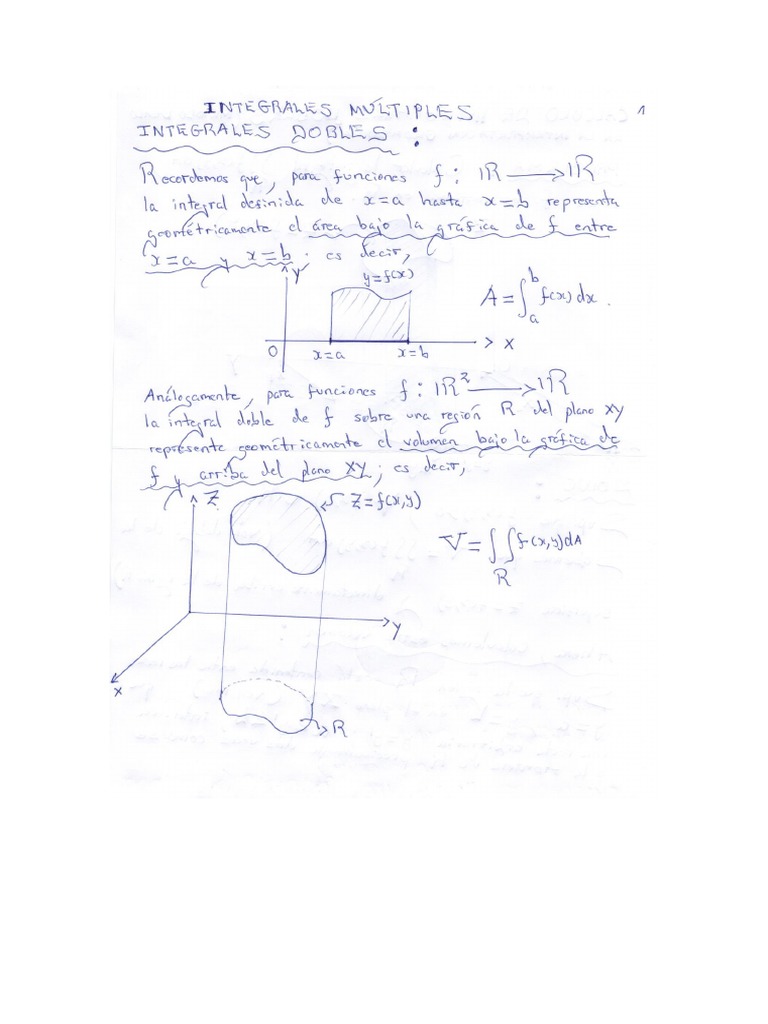 INTEGRALES MÚLTIPLES 1
INTEGRALES DOBLES :
Recordemos que, para funciones f : IR → IR
la integral definida de x=a hasta x=b representa
geométricamente el área bajo la gráfica de f entre
x=a y x=b ; es decir,
Y
y=f(x)
A = ∫_a^b f(x) dx .
0 x=a x=b X
Análogamente, para funciones f : IR² → IR
la integral doble de f sobre una región R del plano XY
represente geométricamente el volumen bajo la gráfica de
f y arriba del plano XY ; es decir,
Z
Z=f(x,y)
V = ∫∫_R f(x,y)dA
Y
X
R